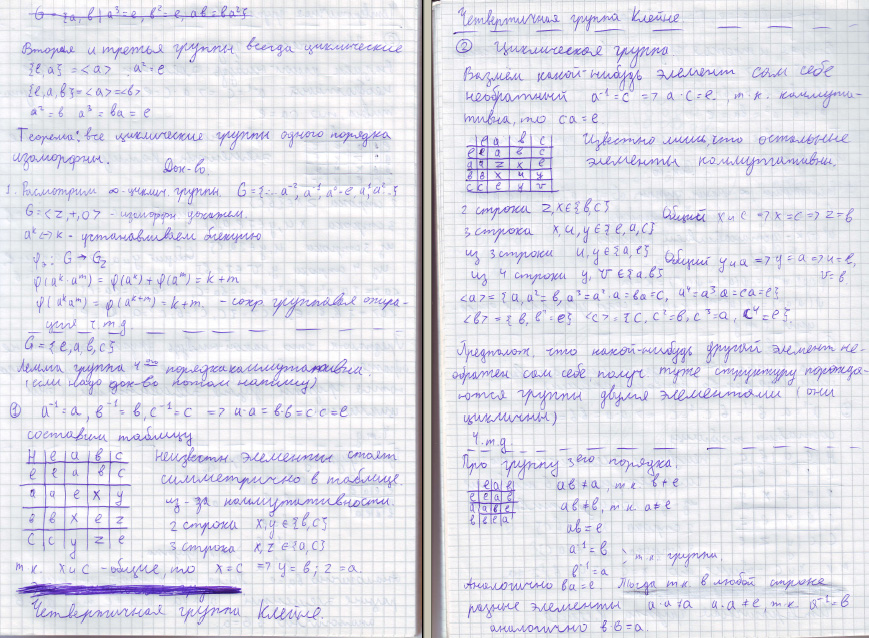 G = {a, b | a³=e, b²=e, ab=ba²}
Вторая и третья группы всегда циклические
{e,a} = <a> a²=e
{e,a,b}=<a>=<b>
a²=b a³=ba=e
Теорема: все циклические группы одного порядка
изоморфны.
Док-во
1. Расмотрим ∞-циклич. группы G={... a⁻², a⁻¹, a⁰=e, a¹, a² ..}
G=<Z,+,0> - изоморфн докажем.
aᵏ<=>k - устанавливаем биекцию
φ: G → G_Z
φ(aᵏ·aᵐ) = φ(aᵏ)+φ(aᵐ)=k+m
φ(aᵏaᵐ)=φ(aᵏ⁺ᵐ)=k+m - сохр. групповая опера-
ция ч.т.д
G={e,a,b,c}
Лемма группа 4ого порядка коммутативна.
(если надо док-во потом напишу)
① a⁻¹=a, b⁻¹=b, c⁻¹=c => a·a=b·b=c·c=e
составим таблицу
H e a b c
e e a b c
a a e x y
b b x e z
c c y z e
Неизвестн. элементы стоят
симметрично в таблице.
из-за коммутативности.
2 строка x,y∈{b,c}
3 строка x,z∈{a,c}
т.к. x и c - общие, то x=c => y=b; z=a.
Четвертичная группа Клейне.
Четвертичная группа Клейне
② Циклическая группа
Возмём какой-нибудь элемент сам себе
необратный a⁻¹=c => a·c=e. , т.к. коммута-
тивна, то ca=e.
e a b c
e e a b c
a a z x e
b b x u y
c c e y v
Известно лишь, что остальные
элементы коммутативны.
2 строка z,x∈{b,c} Общий x и c => x=c => z=b
3 строка x,u,y∈{e,a,c}
из 3 строки u,y∈{a,e} Общий y и a => y=a => u=e,
из 4 строки y,v∈{a,b} v=b
<a>={a, a²=b, a³=a²·a=ba=c, a⁴=a³a=ca=e}
<b>={b, b²=e} <c>={c, c²=b, c³=a, c⁴=e}.
Предполож. что какой-нибудь другой элемент не-
обратен сам себе, получ. туже структуру порожда-
ются группы двумя элементами (они
цикличны)
ч.т.д
Про группу 3его порядка.
e a b
e e a b
a a b e
b b e a
ab≠a, т.к b≠e
ab≠b, т.к a≠e
ab=e
a⁻¹=b
b⁻¹=a
т.к. группа
Аналогично ba=e. Тогда т.к. в любой строке
разные элементы a·a≠a a·a≠e, т.к. a⁻¹=b
аналогично b·b=a.